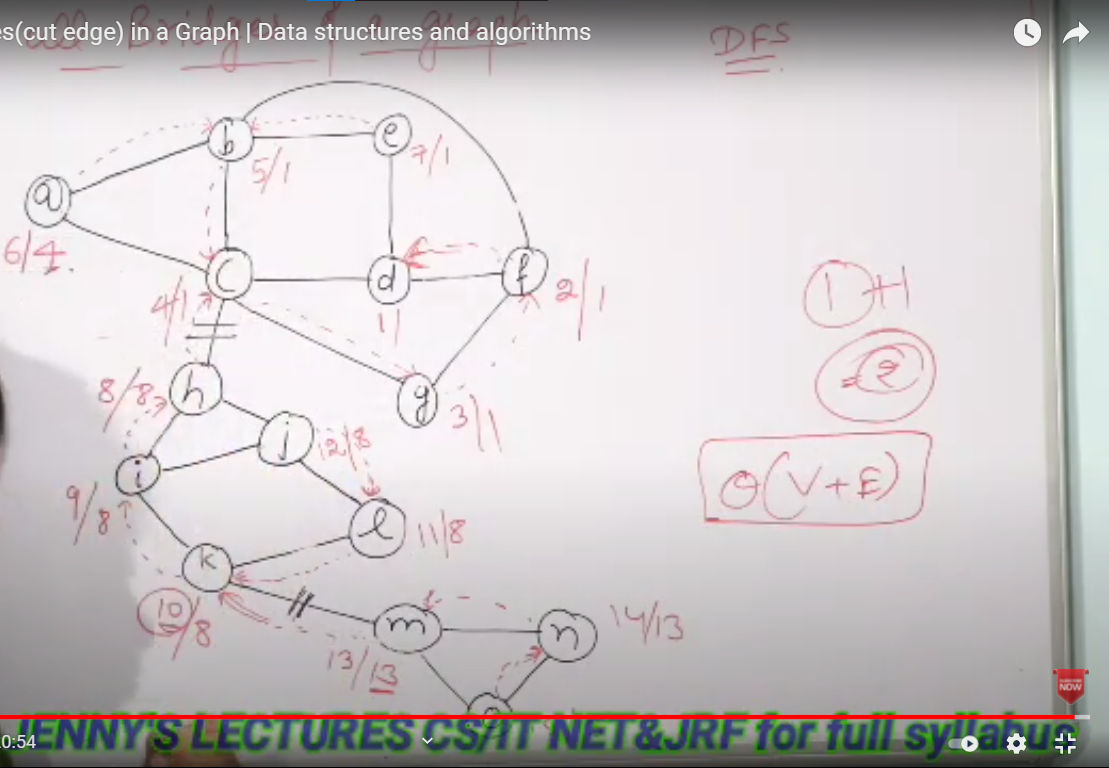 es(cut edge) in a Graph | Data structures and algorithms
all Bridges of a graph
DFS
b
5/1
e
7/1
a
6/4.
c
4/1
d
1/
f
2/1
1+1
=2
h
8/8
g
3/1
j
12/8
i
9/8
l
11/8
θ(V+E)
k
10/8
m
13/13
n
14/13
SUBSCRIBE
NOW
JENNY'S LECTURES CS/IT NET&JRF for full syllabus
0:54